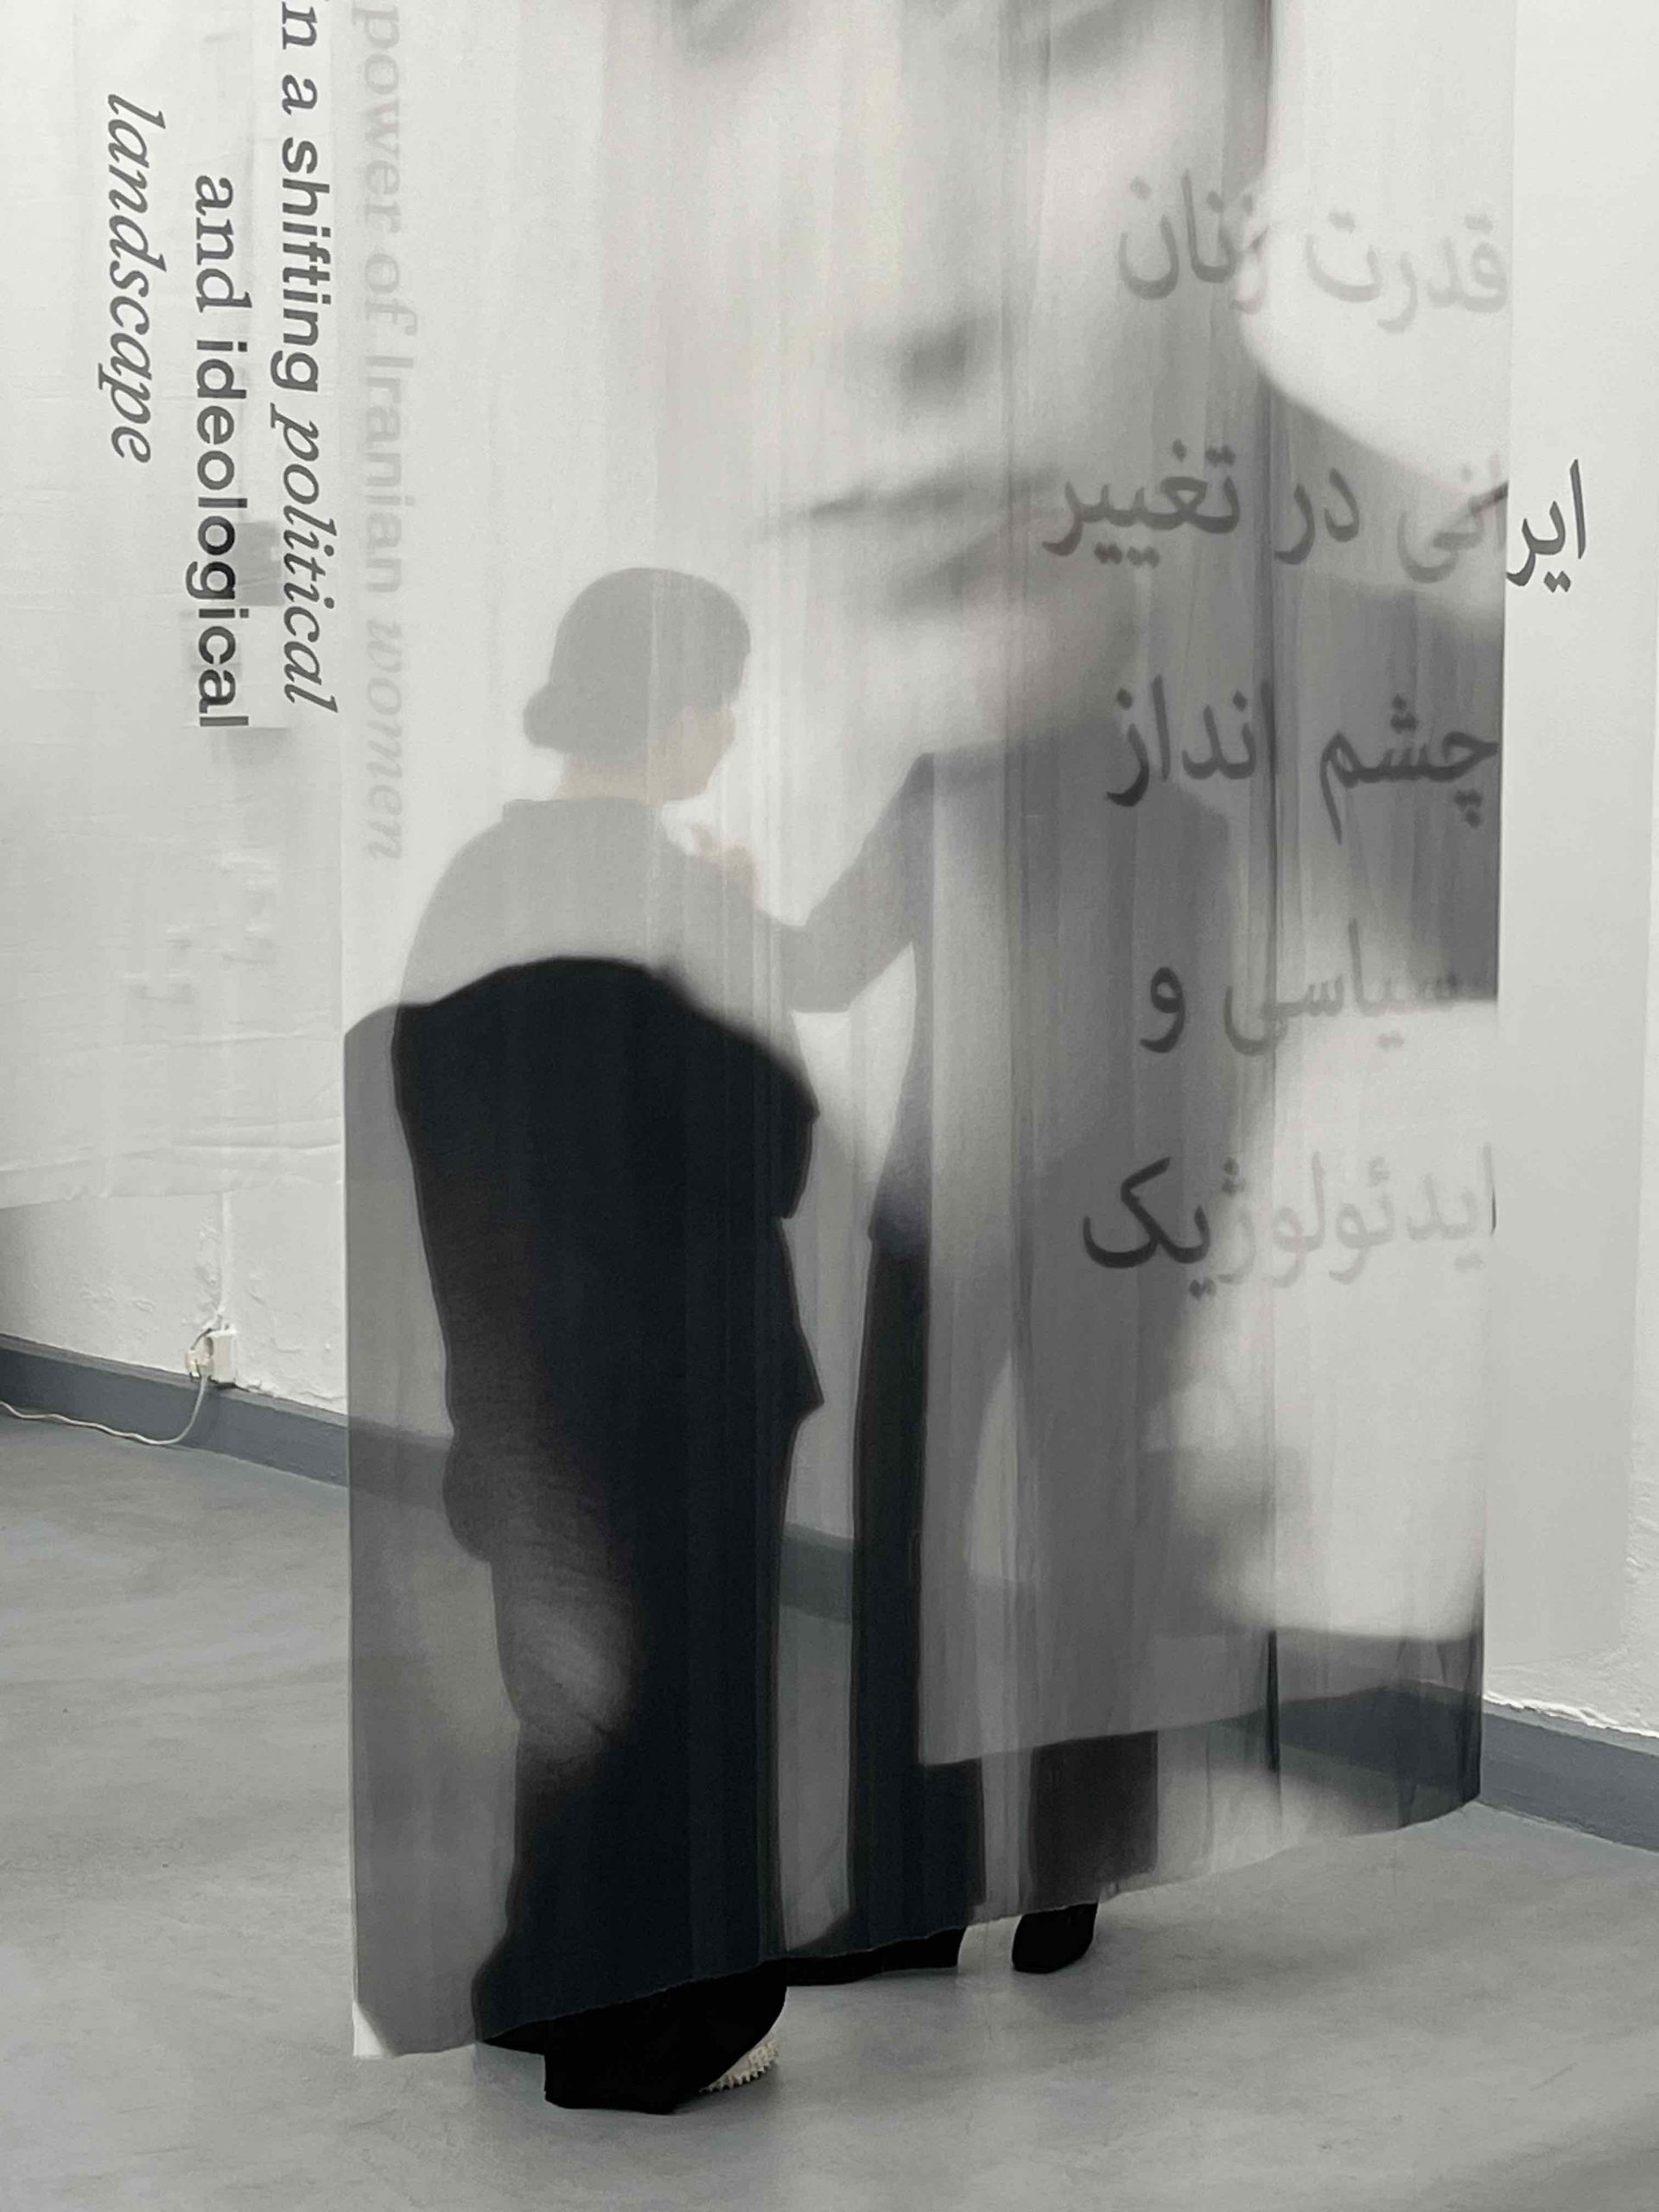 power of Iranian women
n a shifting political
and ideological
landscape
قدرت زنان
ایرانی در تغییر
چشم انداز
سیاسی و
ایدئولوژیک